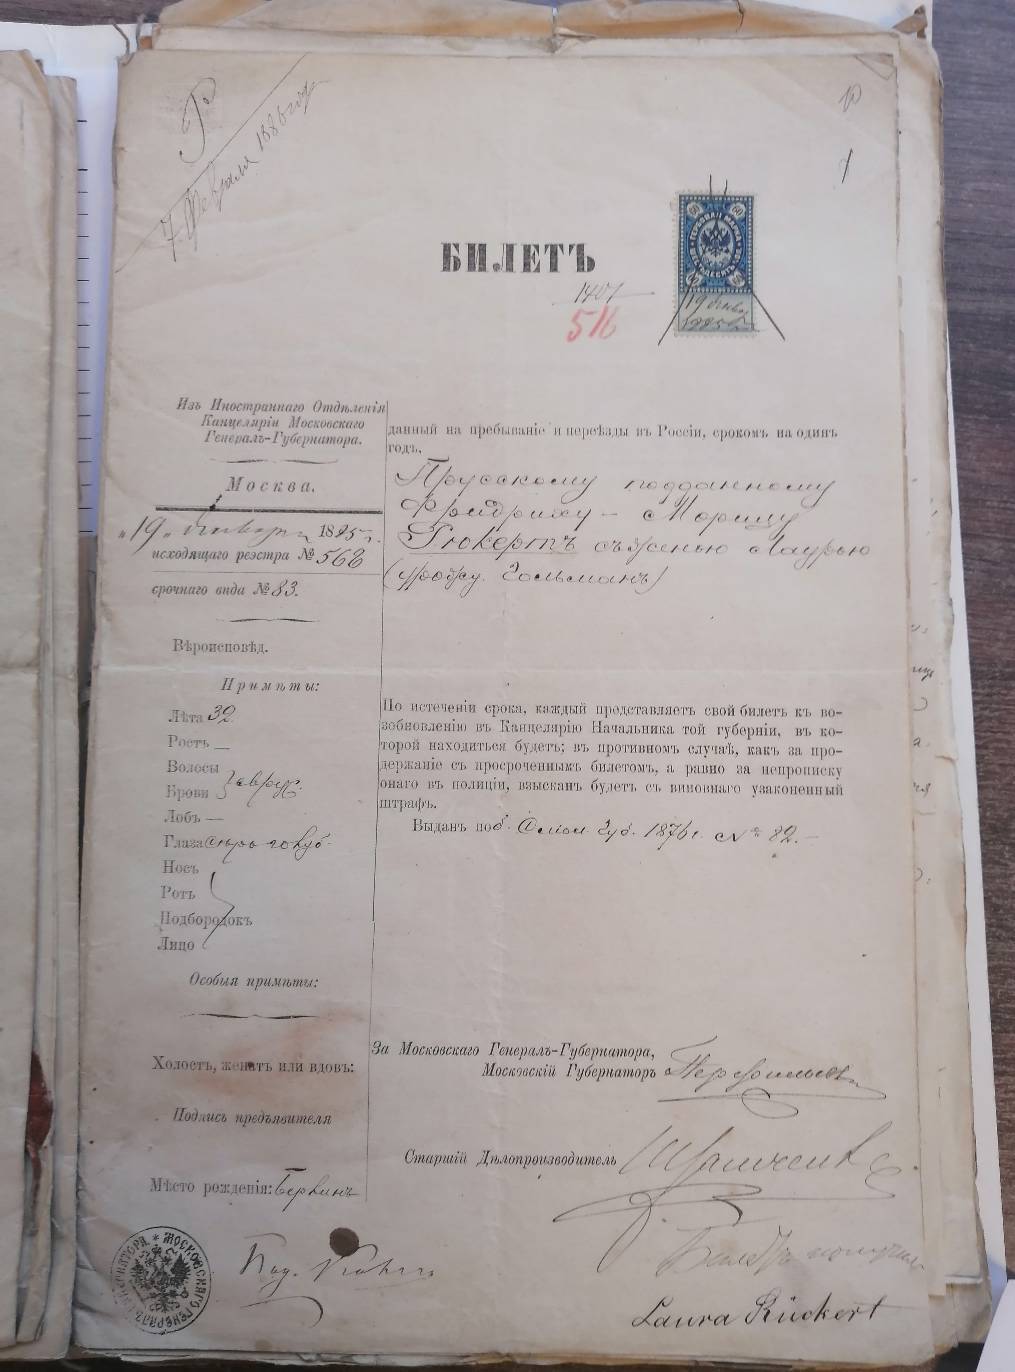 Р
7. Февраля 1886 года
1
БИЛЕТЪ
1401
516
60 60
19 Январ.
1885 г.
Изъ Иностраннаго Отдѣленія
Канцеляріи Московскаго
Генералъ-Губернатора.
Москва.
„19„ Января 1885 г.
исходящаго реэстра № 568
срочнаго вида № 83.
Вѣроисповѣд.
Примѣты:
Лѣта 32
Ростъ —
Волосы
Брови
Лобъ —
Глаза сѣро-голуб.
Носъ
Ротъ
Подбородокъ
Лицо
Особыя примѣты:
Холостъ, женатъ или вдовъ:
Подпись предъявителя
Мѣсто рожденія: Берлинъ
данный на пребываніе и переѣзды въ Россіи, срокомъ на одинъ
годъ,
Прусскому подданному
Фридриху-Морицу
Рюкертъ съ женою Лаурою
(урожд. Гольманъ)
По истеченіи срока, каждый представляетъ свой билетъ къ во-
зобновленію въ Канцелярію Начальника той губерніи, въ ко-
торой находиться будетъ; въ противномъ случаѣ, какъ за про-
держаніе съ просроченнымъ билетомъ, а равно за непрописку
онаго въ полиціи, взысканъ будетъ съ виновнаго узаконенный
штрафъ.
Выданъ по б. Губ. 1876 г. № 82.—
За Московскаго Генералъ-Губернатора,
Московскій Губернаторъ Перфильевъ
Старшій Дѣлопроизводитель
МОСКОВСКАГО ГЕНЕРАЛЪ ГУБЕРНАТОРА
Билетъ получил
Laura Rückert